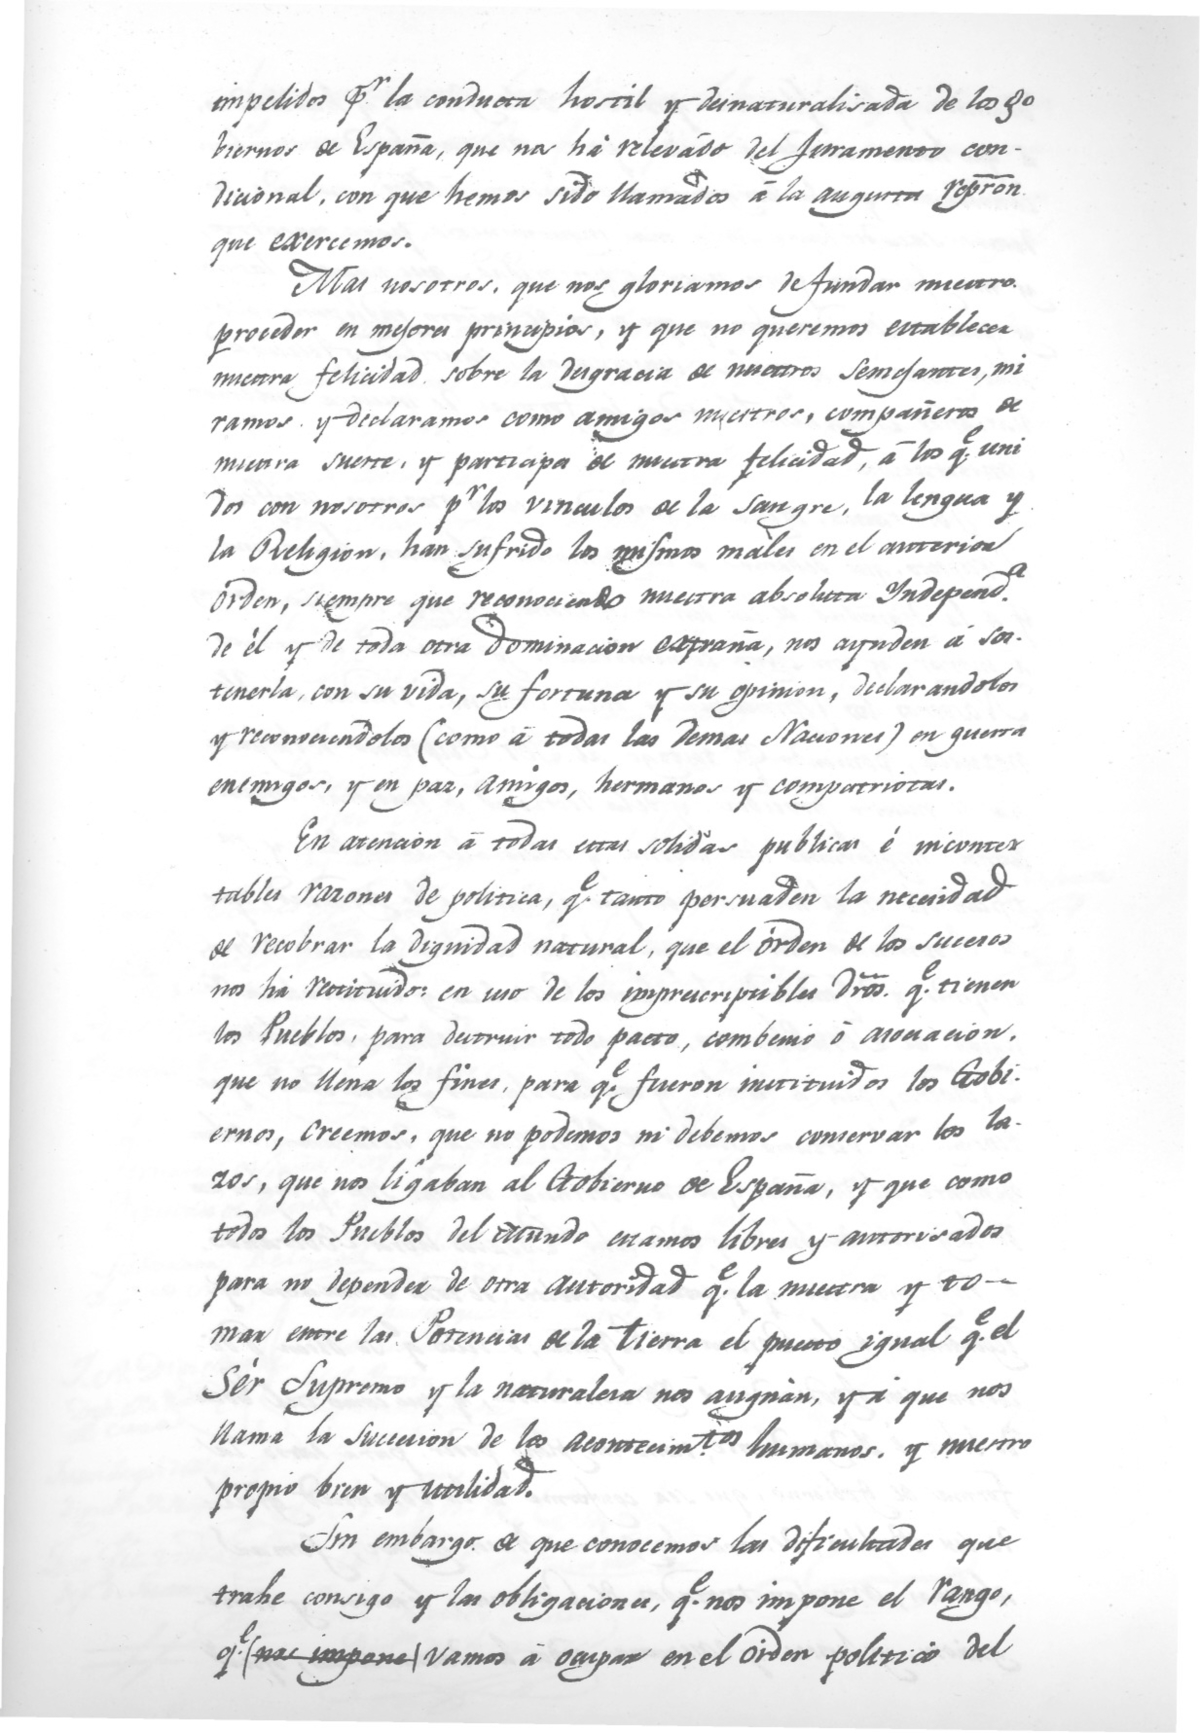 impelidos pr. la conducta hostil y deinaturalisada de los go
biernos de España, que nos há relevádo del Juramento con-
dicional, con que hemos sido llamados á la augusta repron.
que exercemos.
Mas nosotros, que nos gloriamos de fundar nuestro
proceder en mejores principios, y que no queremos establecer
nuestra felicidad sobre la desgracia de nuestros semejantes, mi
ramos y declaramos como amigos nuestros, compañeros de
nuestra suerte, y participes de nuestra felicidad, á los qe. uni
dos con nosotros pr los vinculos de la sangre, la lengua y
la Religion, han sufrido los mismos máles en el anterior
órden, siempre que reconociendo nuestra absoluta Yndependa.
de él y de toda otra Dominacion extraña, nos ayuden á sos-
tenerla, con su vida, su fortuna y su opinion, declarandolos
y reconociendolos (como á todas las demas Naciones) en guerra
enemigos, y en paz, amigos, hermanos y compatriotas.
En atencion á todas estas solidas publicas é incontex
tables razones de politica, qe. tanto persuaden la necesidad
de recobrar la dignidad natural, que el órden de los sucesos
nos há restituido: en uso de los imprescriptibles dros. qe. tienen
los Pueblos, para destruir todo pacto, combenio ó asociacion,
que no llena los fines, para qe. fueron instituidos los Gobi-
ernos, creemos, que no podemos ni debemos conservar los la-
zos, que nos ligaban al Gobierno de España, y que como
todos los Pueblos del mundo estamos libres y autorisados
para no depender de otra autoridad qe. la nuestra y to-
mar entre las Potencias de la tierra el puesto igual qe. el
Sér Supremo y la naturaleza nos asignan, y á que nos
llama la succesion de los acontecimtos humanos, y nuestro
propio bien y utilidad.
Sin embargo de que conocemos las dificultades que
trahe consigo y las obligaciones, qe. nos impone el rango,
qe. (nos impone) vamos á ocupar en el órden politico del